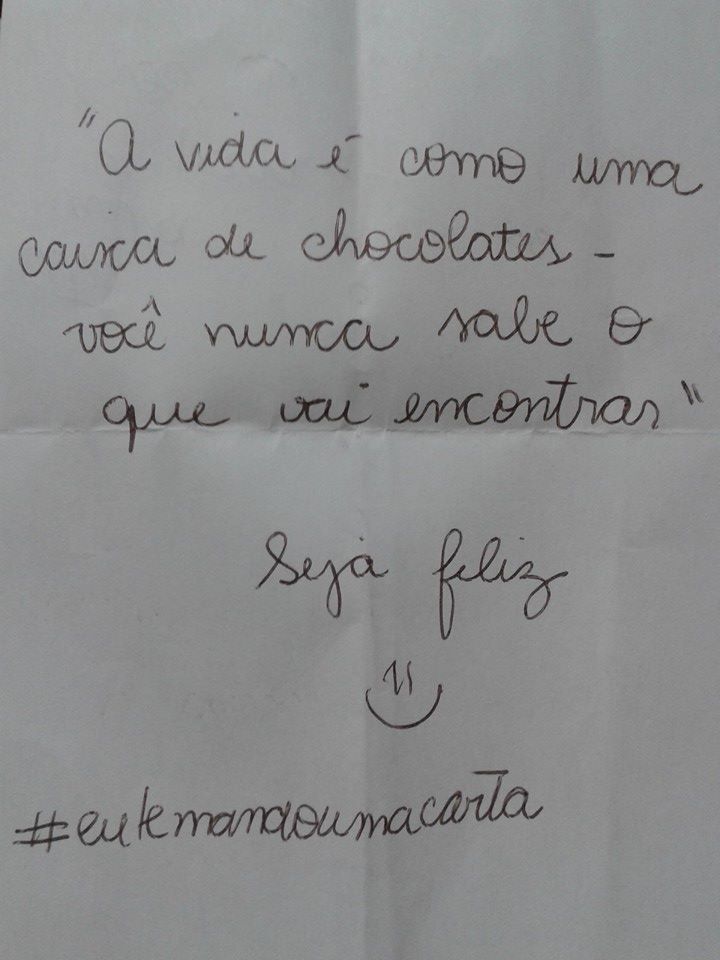 "A vida é como uma
caixa de chocolates -
você nunca sabe o
que vai encontrar"
Seja feliz
#eutemandoumacarta